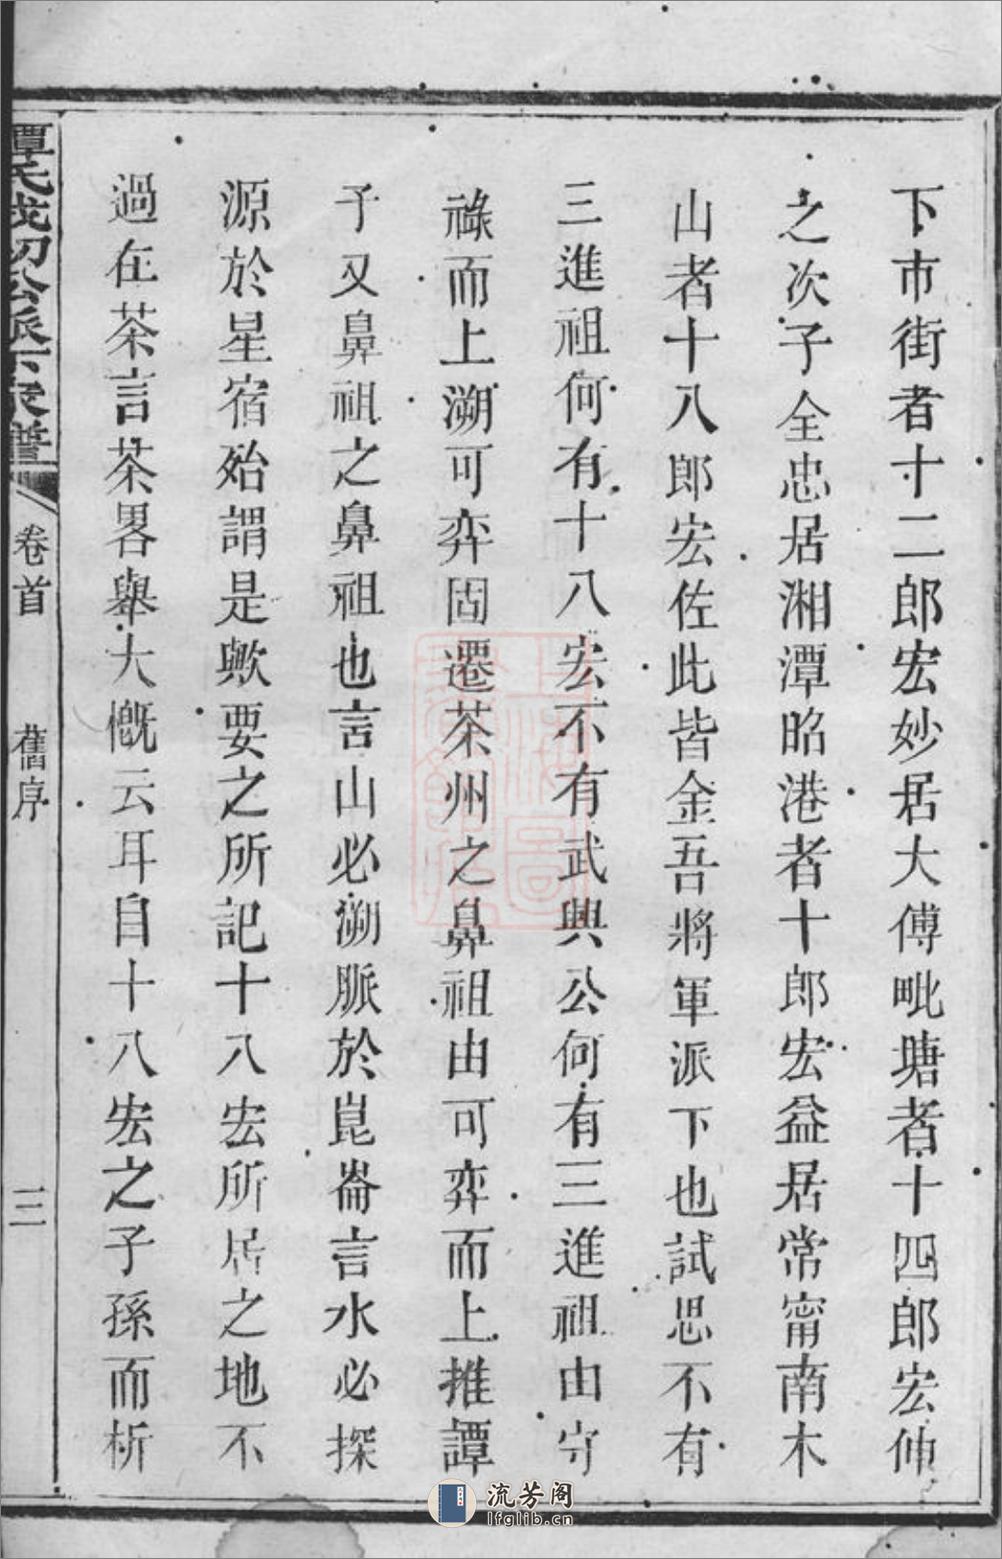 下市街者十二郎宏妙居大傅毗塘者十四郎宏仲
之次子全忠居湘潭昭港者十郎宏益居常甯南木
山者十八郎宏佐此皆金吾將軍派下也試思不有
三進祖何有十八宏不有武興公何有三進祖由守
祿而上溯可弈固遷茶州之鼻祖由可弈而上推譚
子又鼻祖之鼻祖也言山必溯脈於崑崙言水必探
源於星宿殆謂是歟要之所記十八宏所居之地不
過在茶言茶畧舉大慨云耳自十八宏之子孫而析
譚氏茂初公派下家譜
卷首
舊序
三
流芳阁
lfglib.cn